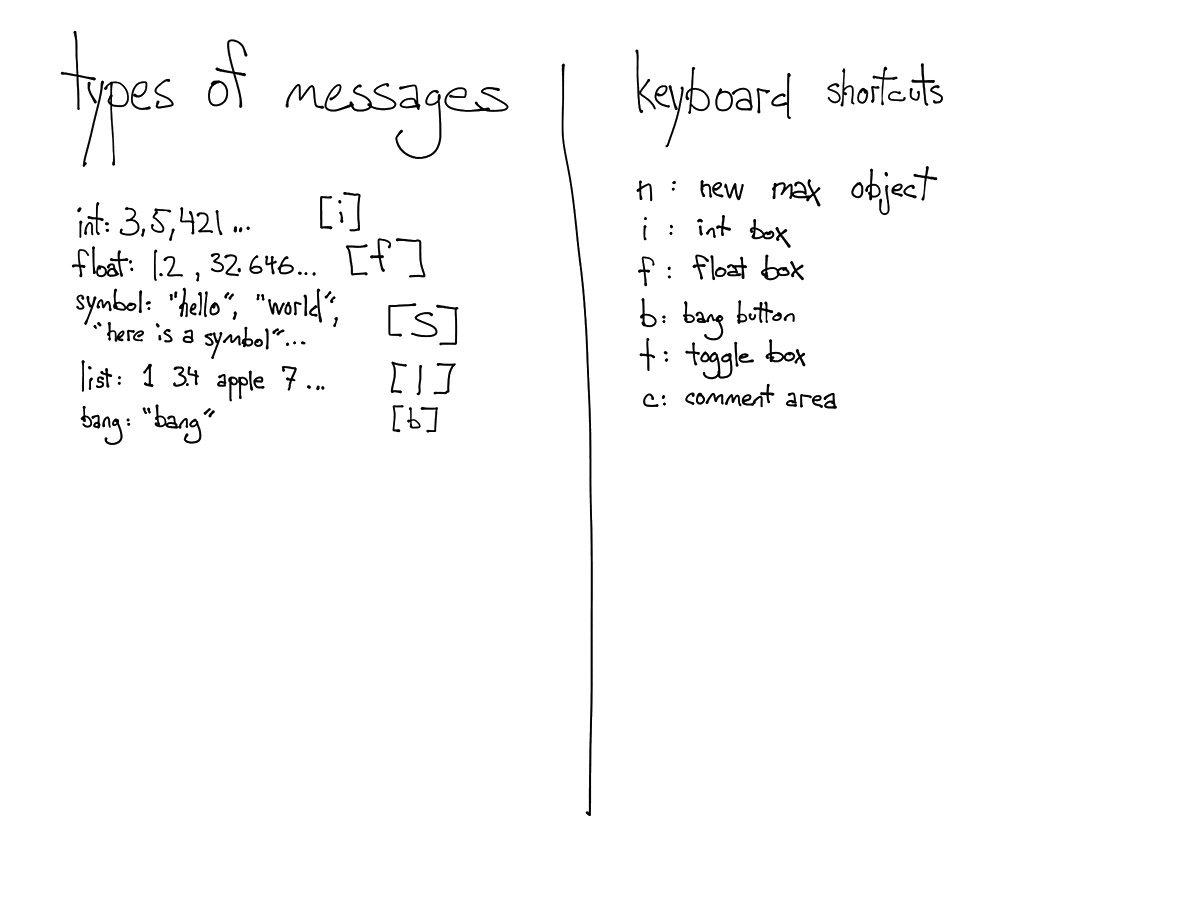 types of messages
int: 3,5,421... [i]
float: 1.2, 32.646... [f]
symbol: "hello", "world",
"here is a symbol"... [S]
list: 1 3.4 apple 7... [l]
bang: "bang" [b]
keyboard shortcuts
n: new max object
i: int box
f: float box
b: bang button
t: toggle box
c: comment area